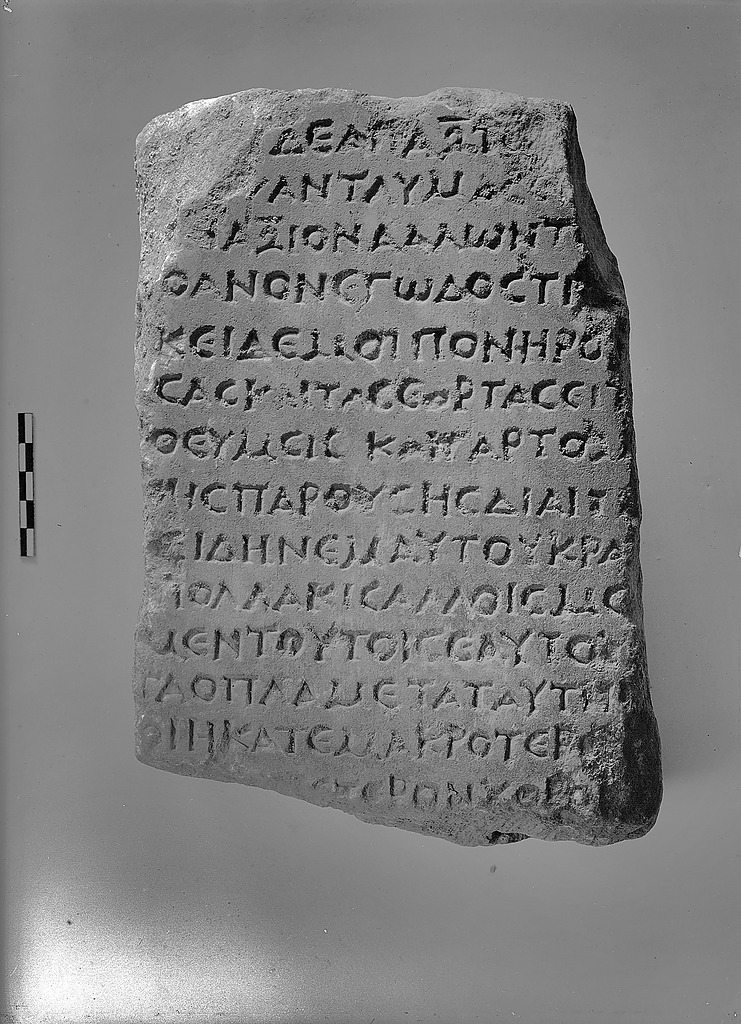 ΔΕΑΠΑΞΤ
ΑΝΤΛΥΜΑ
ΑΞΙΟΝΑΛΛΩΝΤ
ΘΑΝΟΝΕΓΩΔΟϹΤΡ
ΚΕΙΔΕΜΟΙΠΟΝΗΡΟ
ϹΑϹΚΑΙΤΑϹΕΟΡΤΑϹϹΕΙ
ΘΕΥΜΕΙϹ ΚΑΙΓΑΡΤΟ
ΗϹΠΑΡΟΥϹΗϹΔΙΑΙΤ
ΕΙΔΗΝΕΜΑΥΤΟΥΚΡΑ
ΠΟΛΛΑΚΙϹΑΛΛΟΙϹΜΕ
ΜΕΝΤΟΥΤΟΙϹΕΑΥΤΟ
ΤΑΟΠΛΑΜΕΤΑΤΑΥΤΗ
ΟΙΗΚΑΤΕΜΑΚΡΟΤΕΡ
ΤΕΡΟΝΧΟΡ